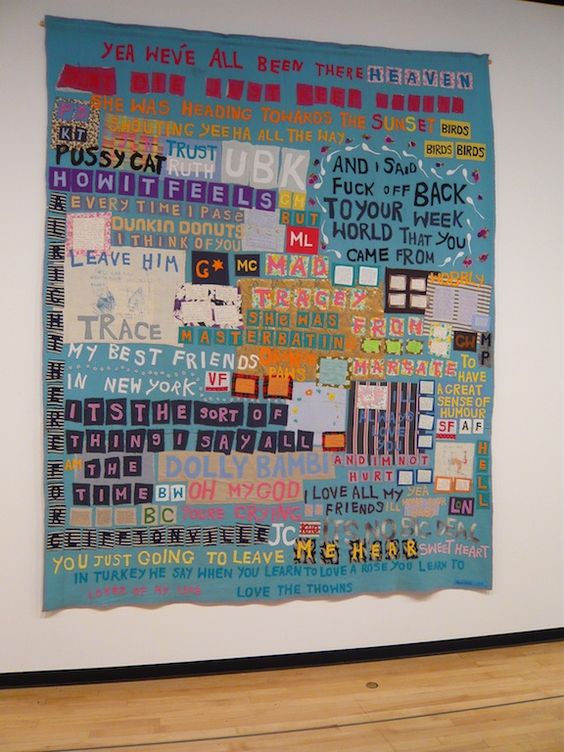 YEA WE'VE ALL BEEN THERE HEAVEN
DIE JUST
SHE WAS HEADING TOWARDS THE SUNSET BIRDS
SHOUTING YEEHA ALL THE WAY BIRDS BIRDS
KT
TRUST
RUTH
PUSSY CAT
UBK
HOW IT FEELS
GM
BUT
EVERY TIME I PASS
DUNKIN DONUTS
I THINK OF YOU
ML
AND I SAID
FUCK OFF BACK
TO YOUR WEEK
WORLD THAT YOU
CAME FROM
LEAVE HIM
G★
MC
MAD
TRACEY
FROM
MARGATE
WOBBLY
SHE WAS
MASTERBATIN
TRACE
PAWS
CW
MP
MY BEST FRIENDS
IN NEW YORK
VF
TO
HAVE
A GREAT
SENSE OF
HUMOUR
SF AF
ITS THE SORT OF
THING I SAY ALL
THE
TIME
AM
DOLLY BAMBI
AND IM NOT
HURT
HELL
BW
OH MY GOD
I LOVE ALL MY
FRIENDS
YEA
LN
BC
YOURE CRYING
ALRIGHT HERE FOR
CLIFFTONVILLE
JC
ITS NO BIG DEAL
YOU JUST GOING TO LEAVE ME HERR SWEET HEART
IN TURKEY WE SAY WHEN YOU LEARN TO LOVE A ROSE YOU LEARN TO
LOVE THE THOWNS
LOVED OF MY LIFE